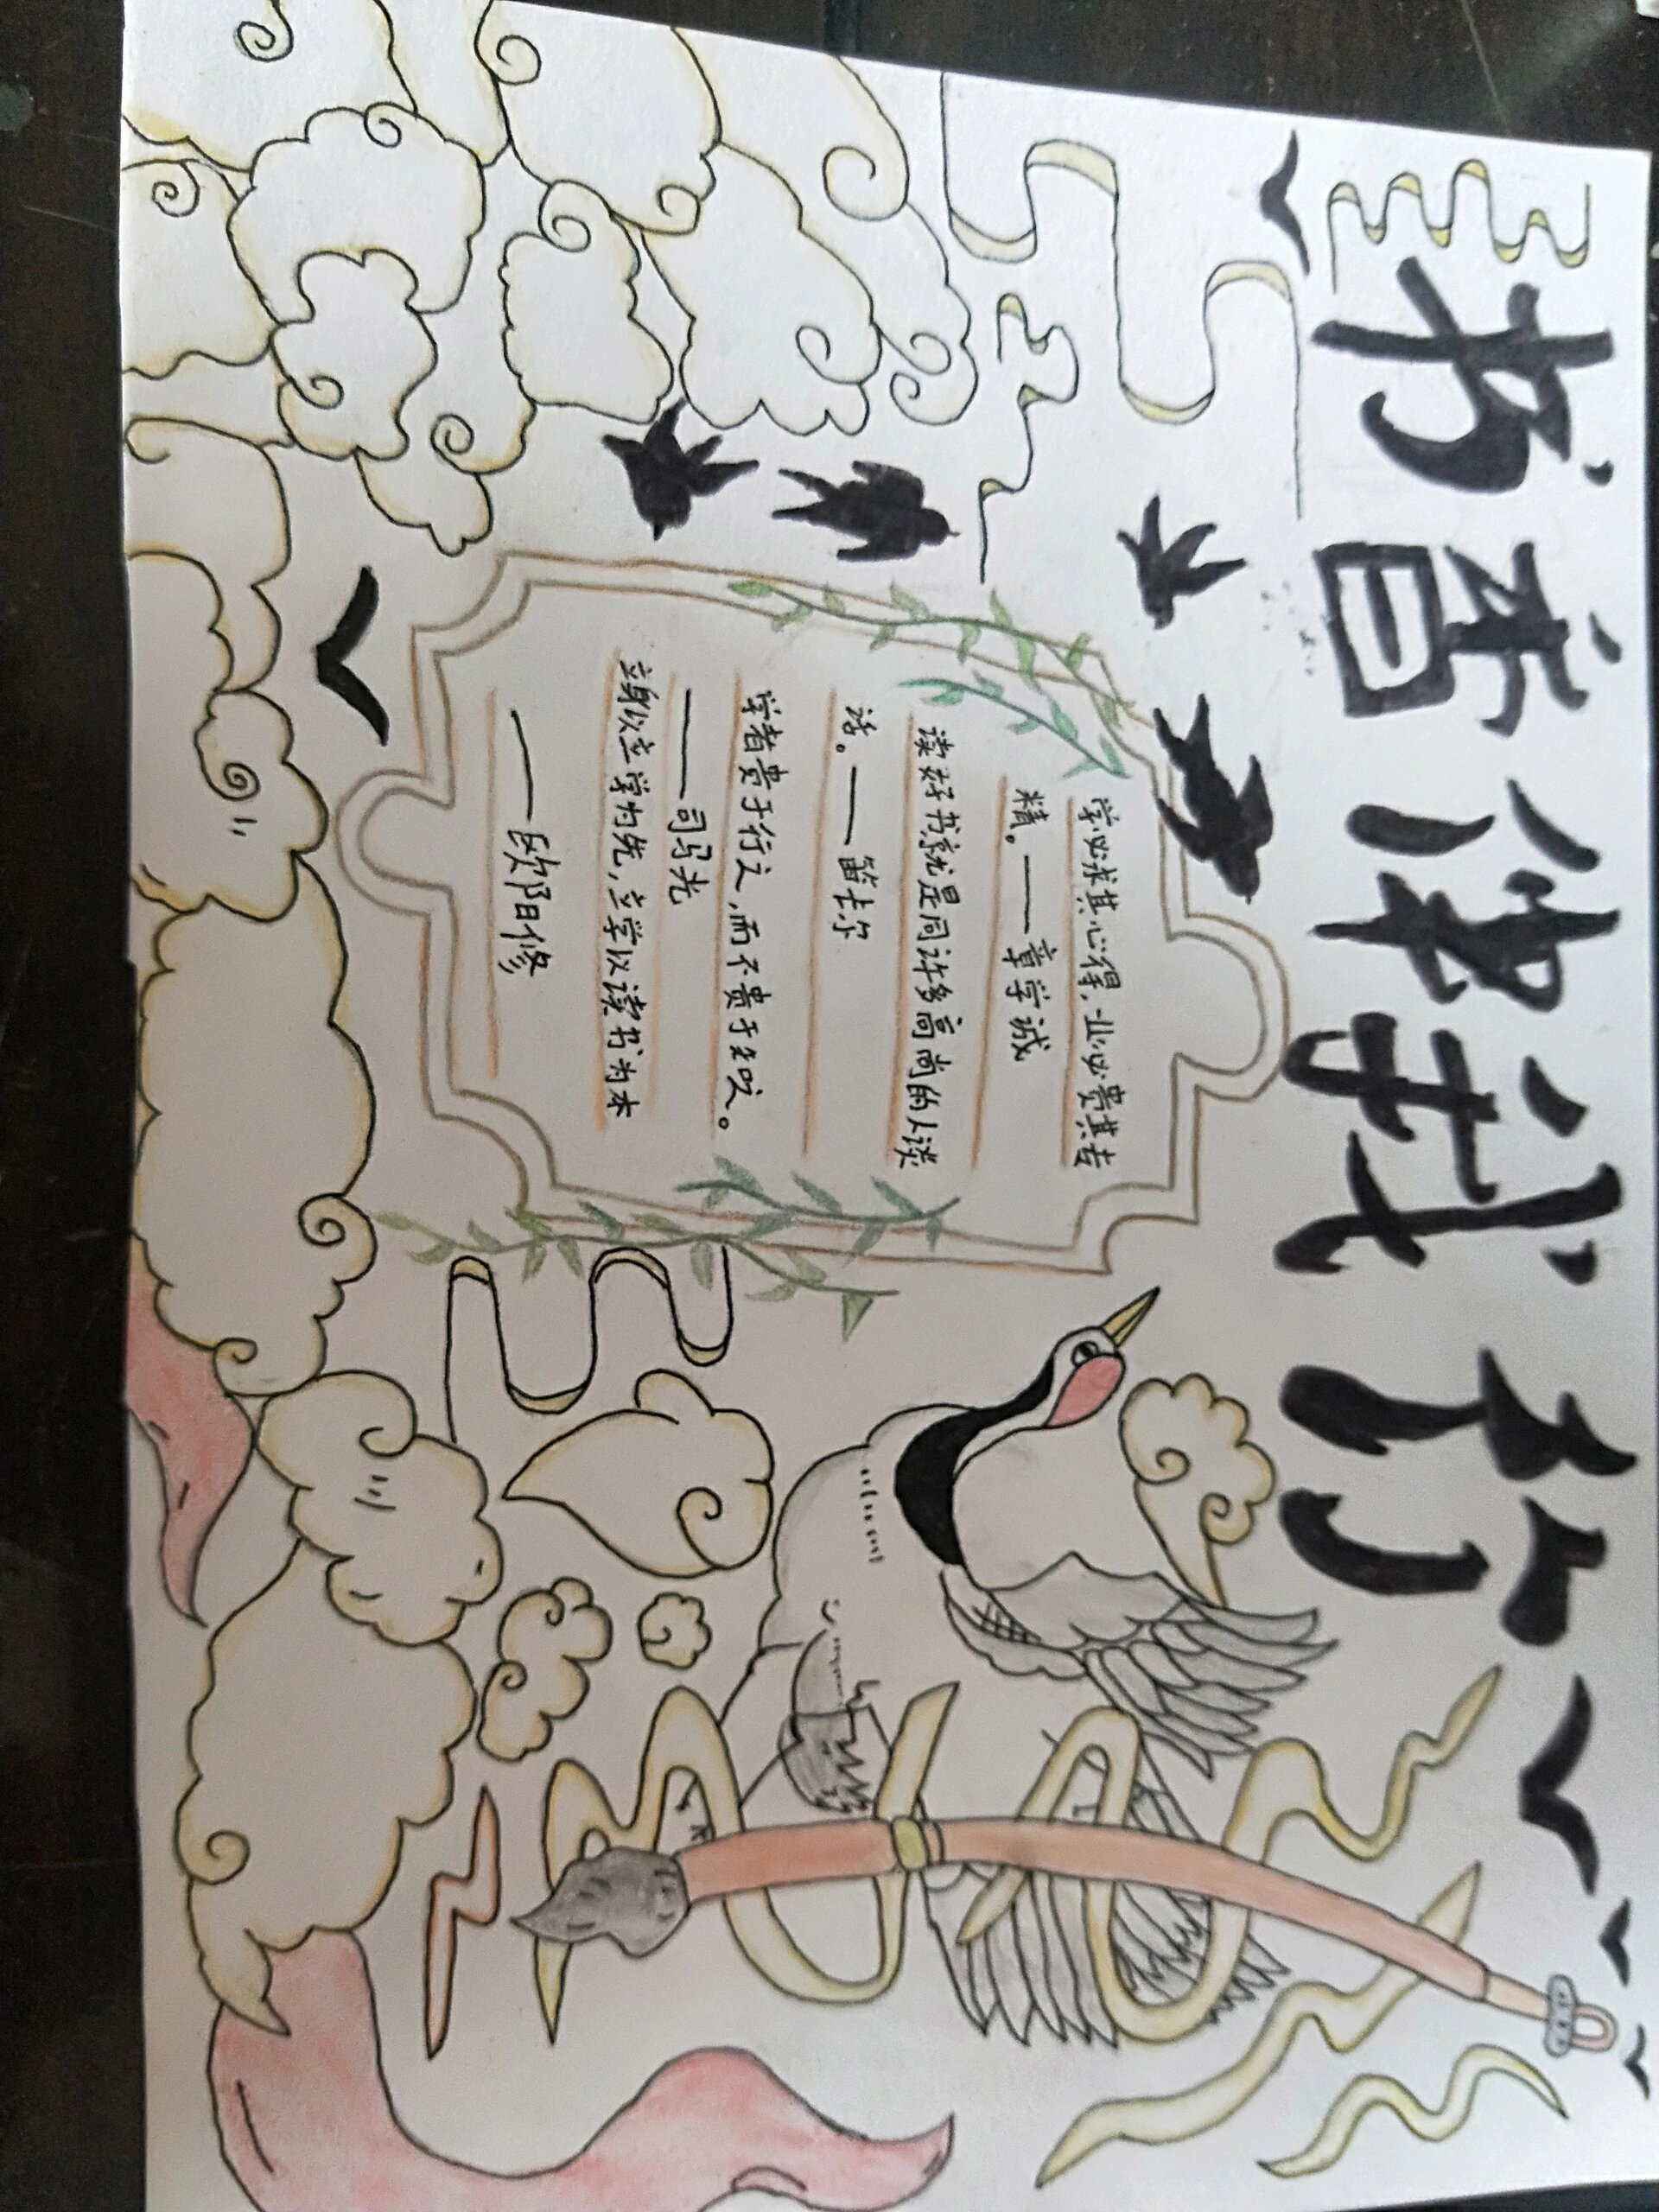 书香伴我行
学必求其心得，业必贵其专
精。——章学诚
读好书就是同许多高尚的人谈
话。——笛卡尔
学者贵于行之，而不贵于知之。
——司马光
立身以立学为先，立学以读书为本
——欧阳修